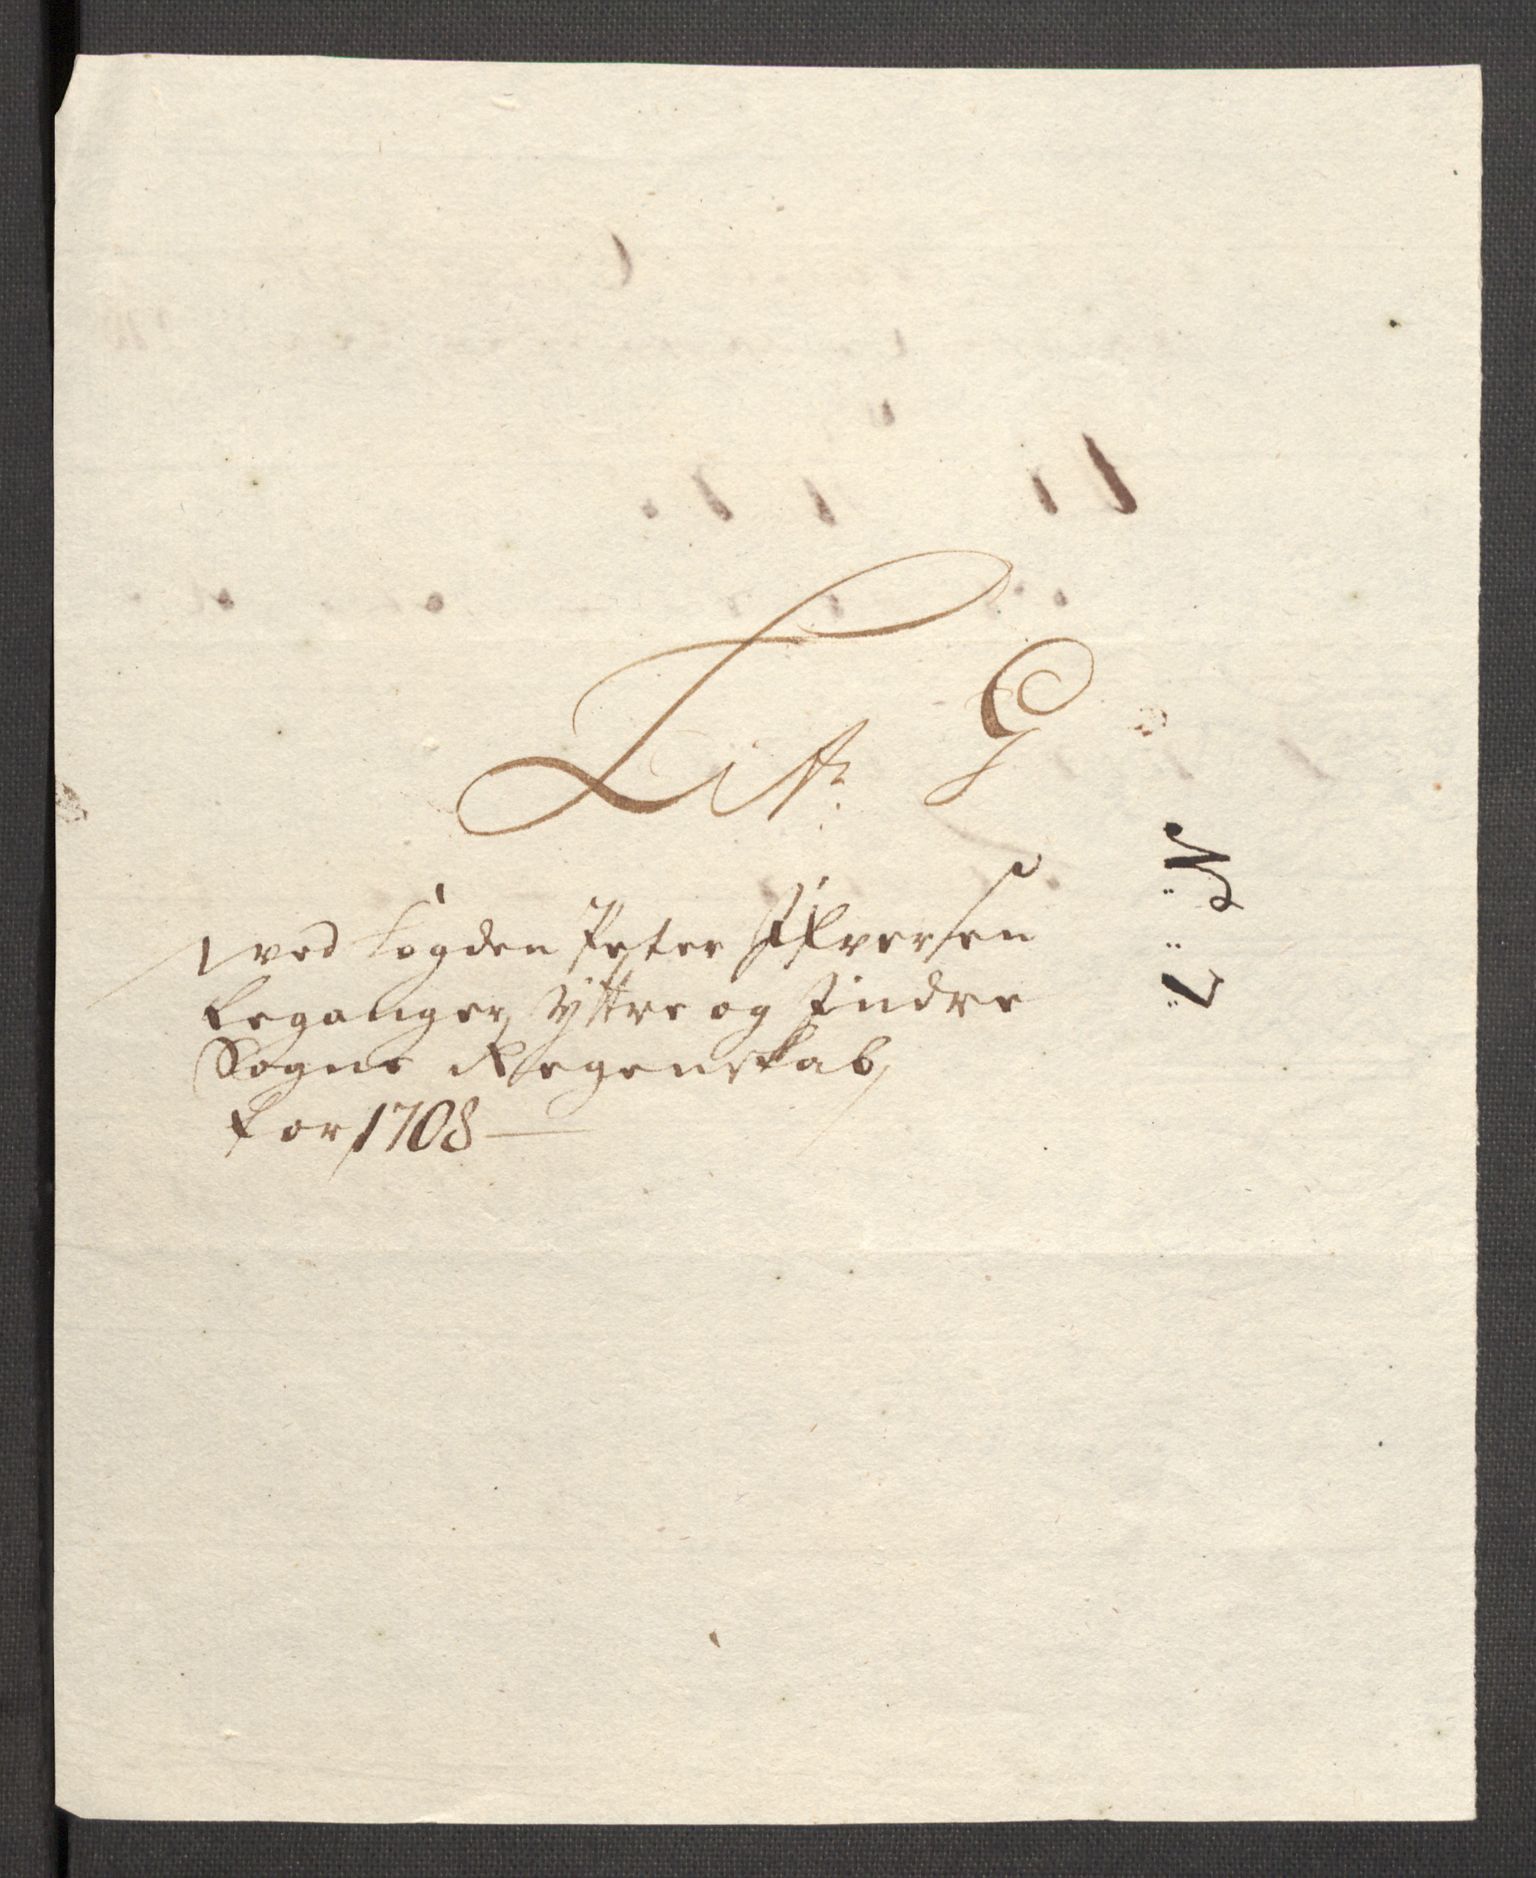 Litr. G
ved fogden Peter Ifversen
Leganger yttre og Indre
Sogns Regenskab
for 1708
N 7